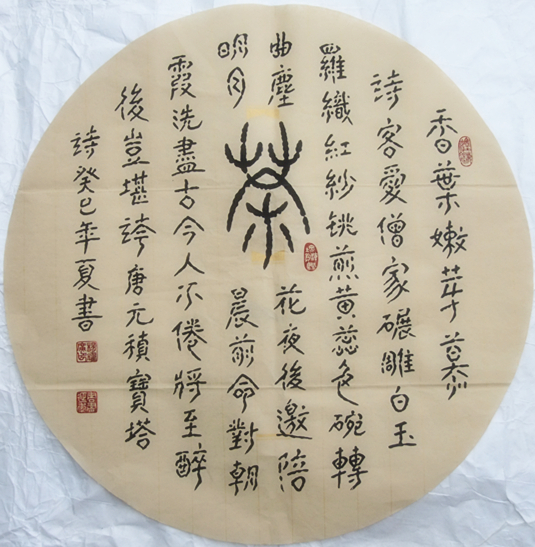 茶
香葉嫩芽慕
詩客愛僧家碾雕白玉
羅織紅紗銚煎黄蕊色碗轉
曲塵花夜後邀陪
明月晨前命對朝
霞洗盡古今人不倦將至醉
後豈堪誇唐元稹寶塔
詩癸巳年夏書